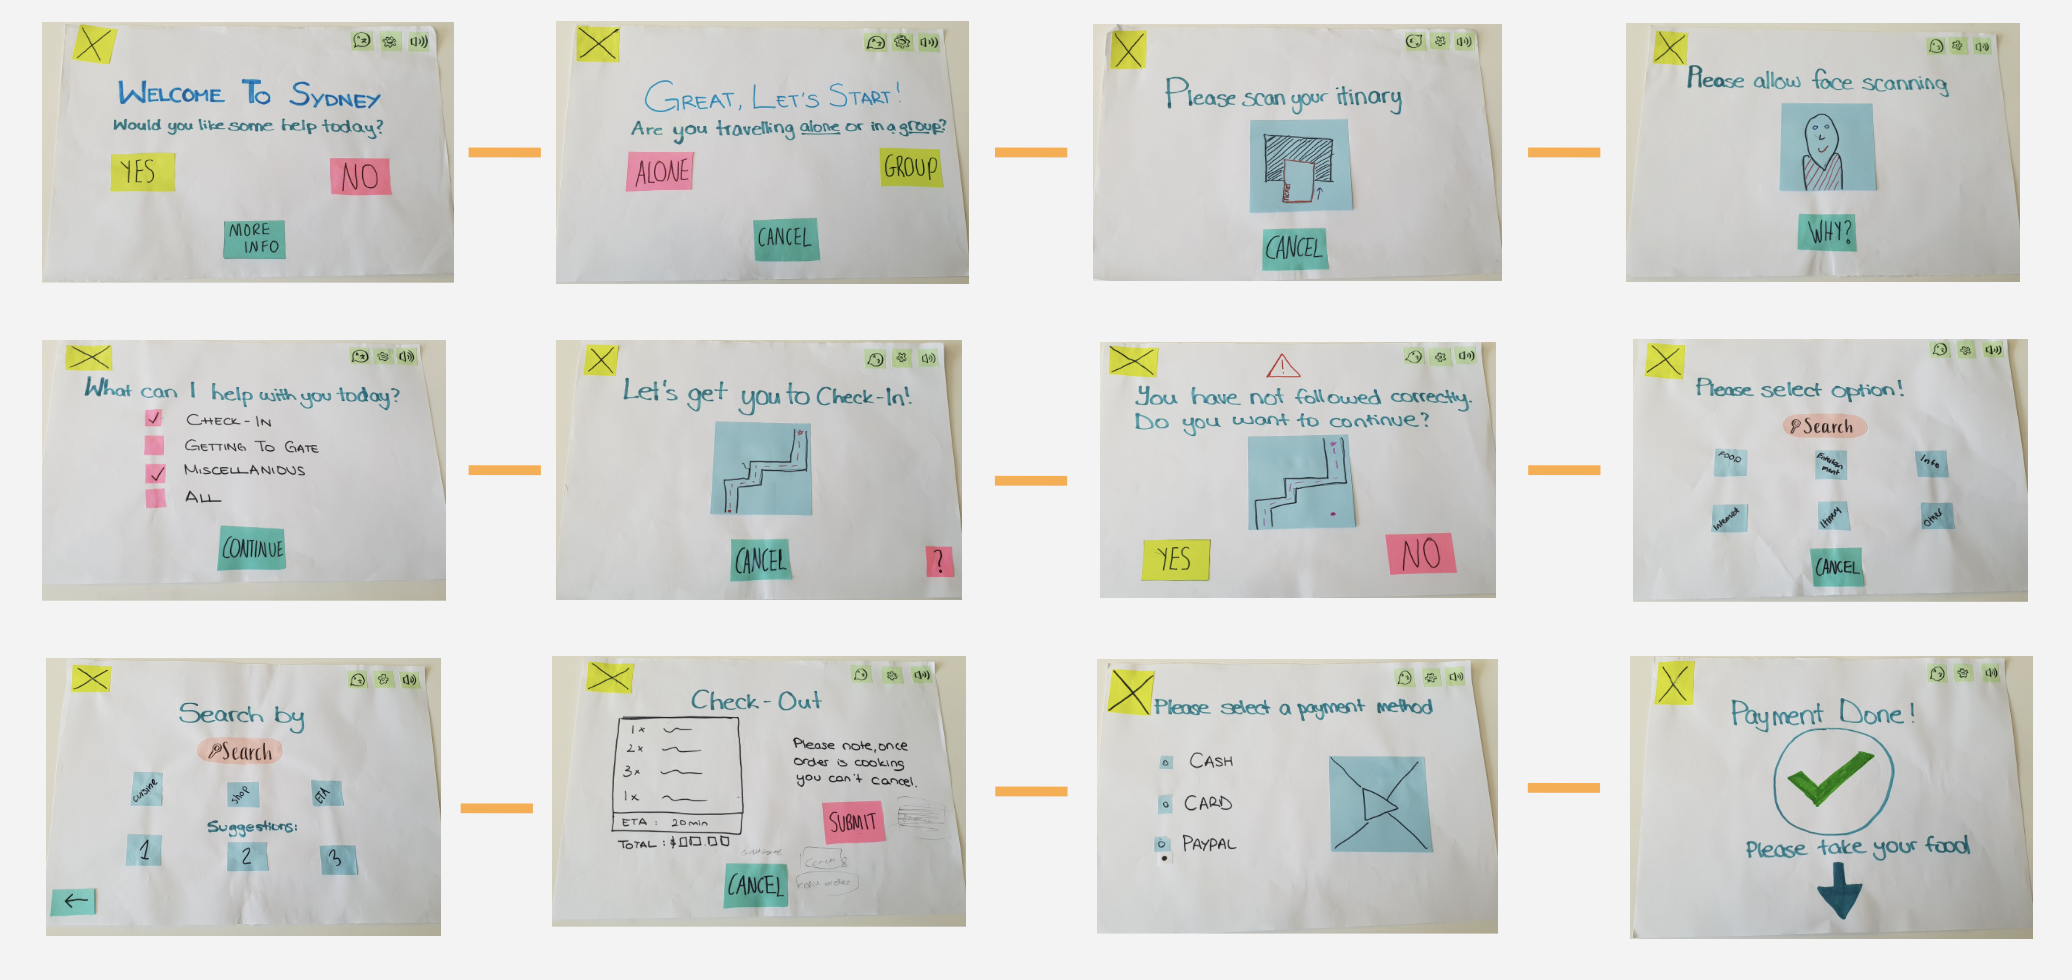 WELCOME TO SYDNEY
Would you like some help today?
YES
NO
MORE
INFO
GREAT, LET'S START!
Are you travelling alone or in a group?
ALONE
GROUP
CANCEL
Please scan your itinary
CANCEL
Please allow face scanning
WHY?
What can I help with you today?
CHECK-IN
GETTING TO GATE
MISCELLANIOUS
ALL
CONTINUE
Let's get you to Check-In!
CANCEL
?
You have not followed correctly.
Do you want to continue?
YES
NO
Please select option!
Search
FOOD
Info
Internet
Other
CANCEL
Search by
Search
cuisine
shop
ETA
Suggestions:
1
2
3
Check-Out
1x
2x
3x
1x
ETA : 20min
TOTAL : $
Please note, once
order is cooking
you can't cancel.
SUBMIT
CANCEL
Please select a payment method
CASH
CARD
PAYPAL
Payment Done!
Please take your food